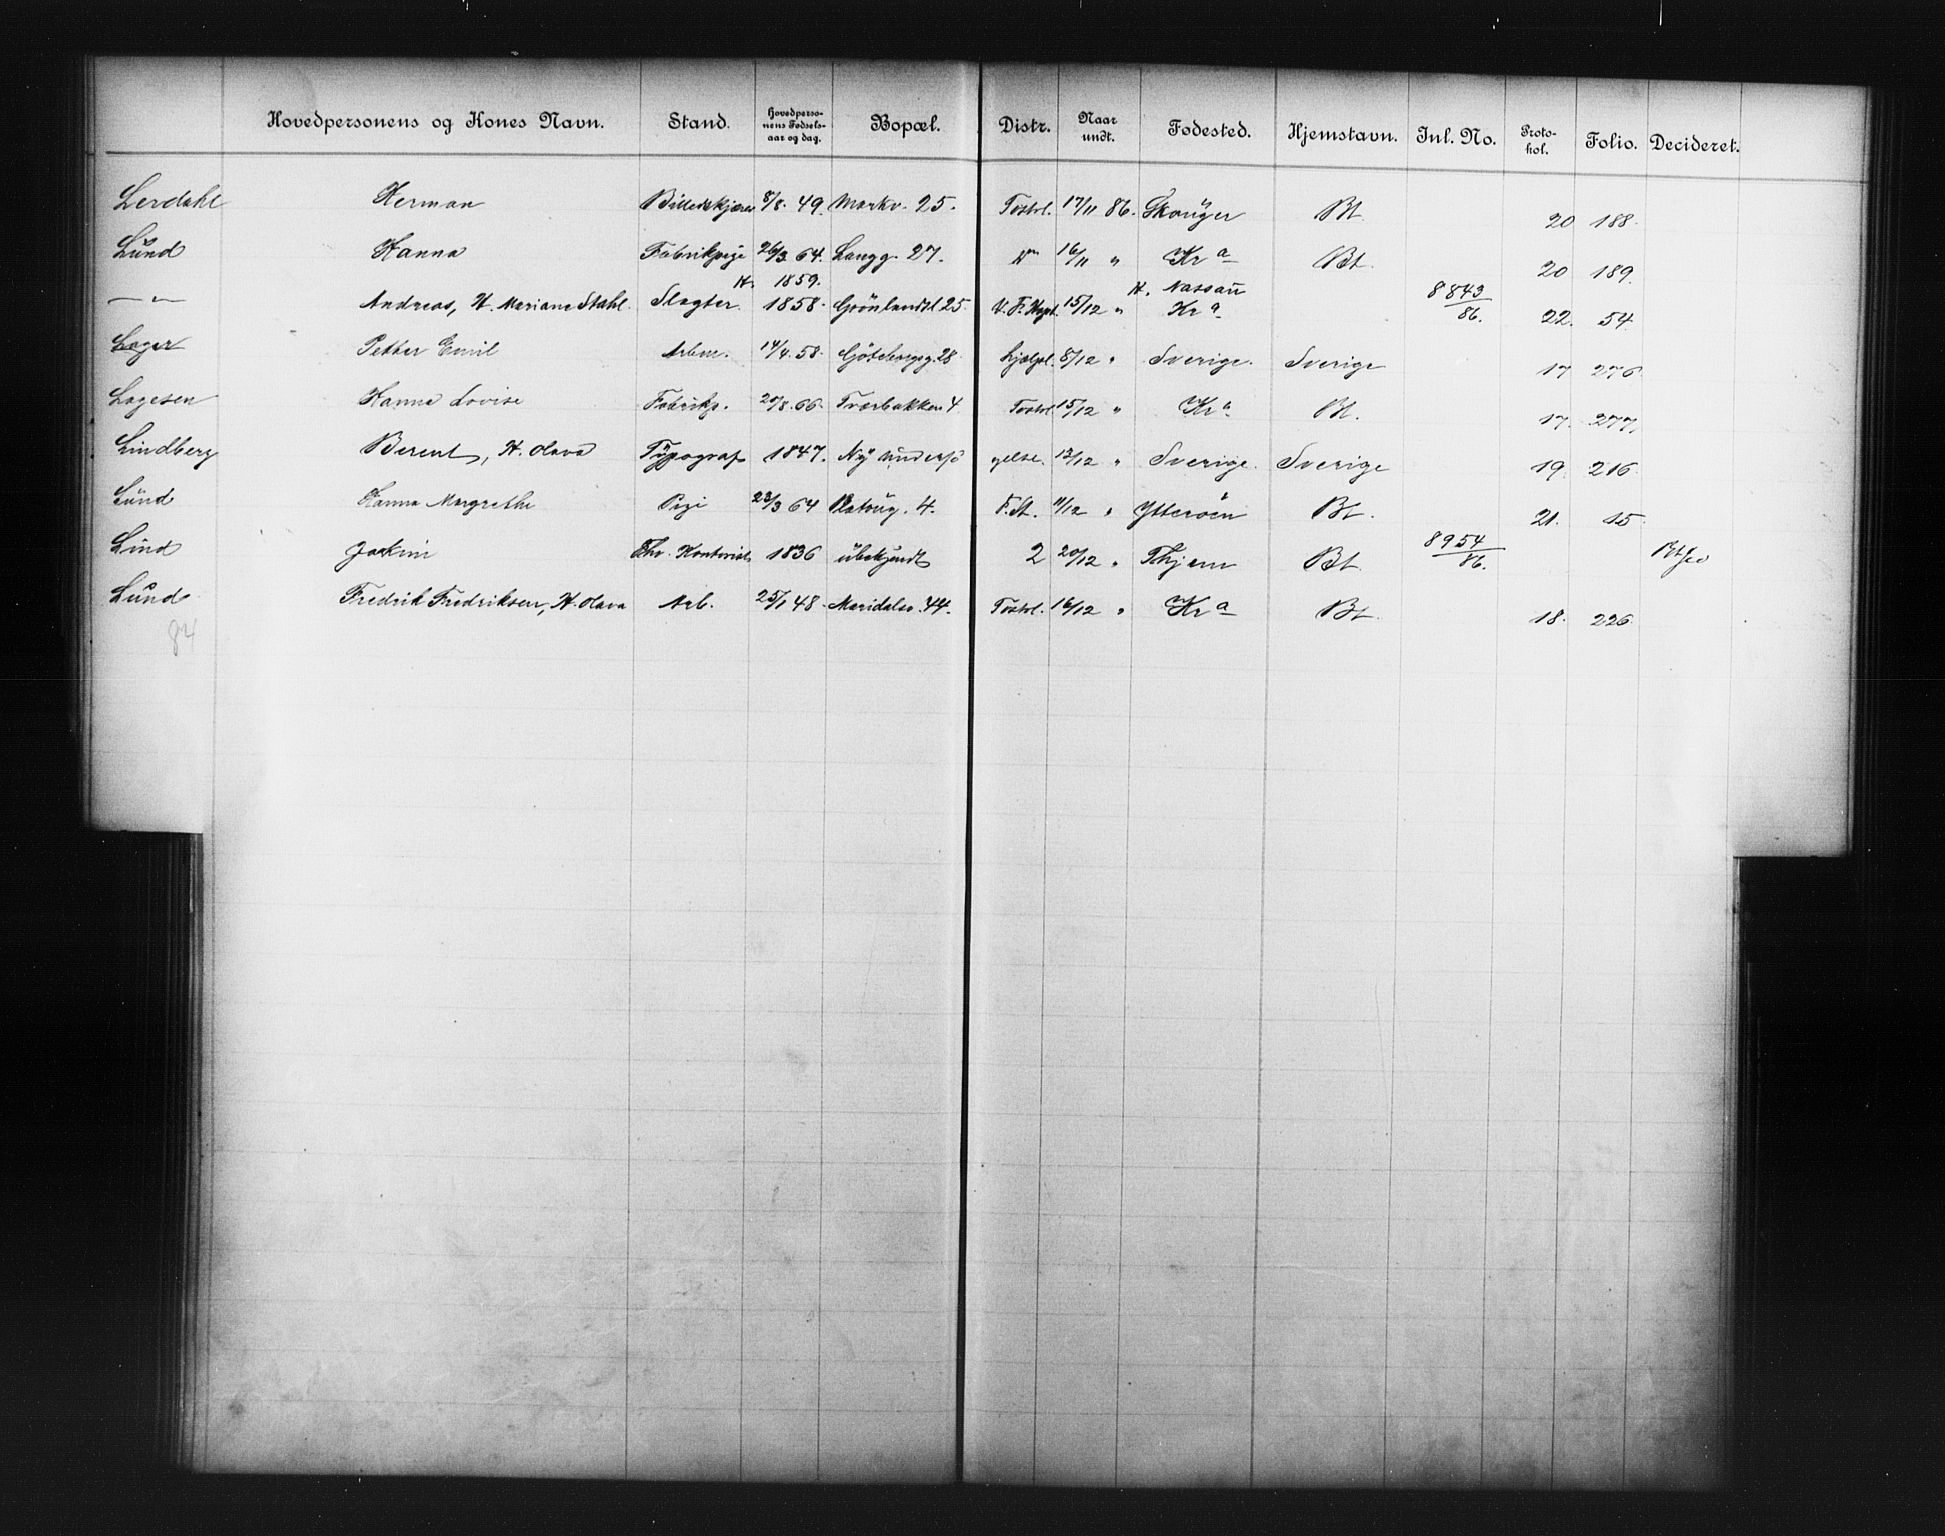 Hovedpersonens og Kones Navn. Stand. Hovedperso-nens Fødsels-aar og dag. Bopæl. Distr. Naar undt. Fødested. Hjemstavn. Inl. No. Proto-kol. Folio. Decideret.
Lerdahl Herman Billedskjærer 8/8. 49. Markv. 25. Tostrl. 17/11 86. Skouger Bt 20 188.
Lund Hanna Fabrikpige 26/3 64. Langg. 27. 16/11 " Kr a Bt. 20 189.
H. 1859. H. Nassau
— " — Andreas, H. Mariane Stahl. Slagter. 1858. Grönlandsl. 25. V. F. Hosp. 15/12 " Kr a 8843/86. 22. 54.
Lager Petter Emil Arbm. 14/4. 58. Göteborgsg. 28. Hjælpl. 8/12 " Sverige. Sverige 17 276.
Lagesen Hanna Lovise Fabrikp. 20/8. 66. Tværbakken 4. Tostrl. 15/12 " Kr a Bt. 17. 277.
Lindberg Berent, H. Olava Typograf 1847. Ny undersø gelse. 13/12 " Sverige. Sverige 19 216.
Lund Hanna Margrethe Pige 23/3 64 4. F. St. 11/12 " Ytterøen Bt. 21. 15.
Lind Joakim Fhv. Kontorist 1836 ubekjendt 2 20/12 " Thjem Bt. 8954/86.
Lund Fredrik Fredriksen, H. Olava Arb. 25/1 48. Maridalsv. 44. Tostrl. 16/12 " Kr a Bt. 18. 226.
84